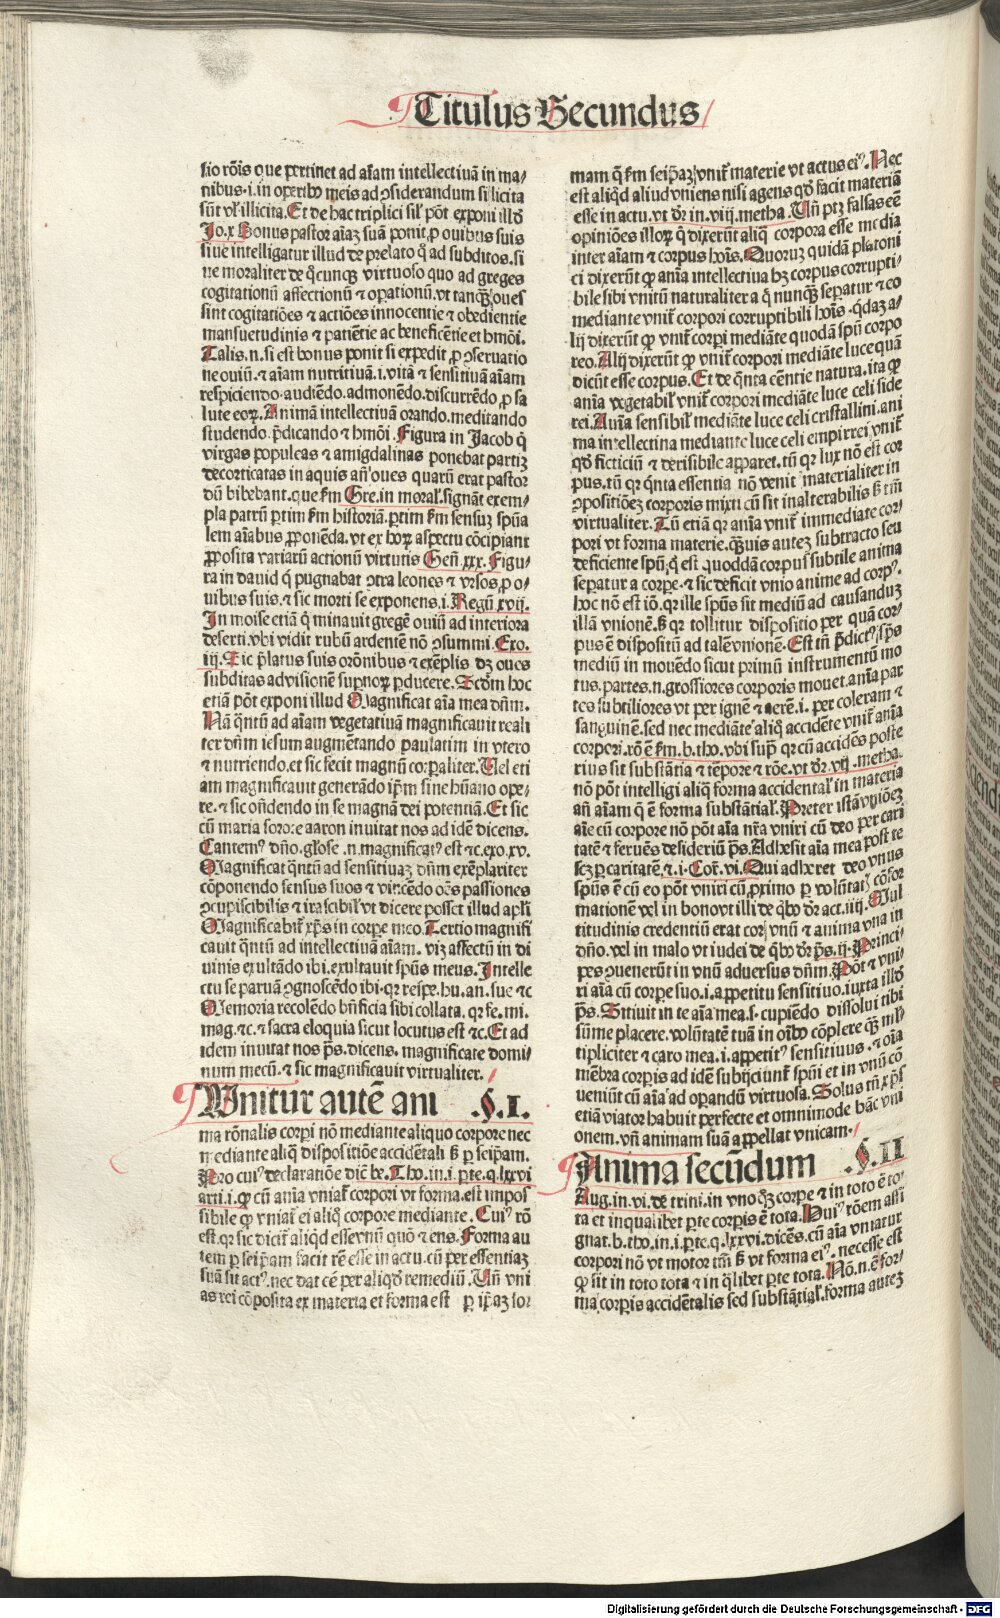 Titulus Secundus
sio rõis que pertinet ad aīam intellectiuā in ma/
nibus .i. in operibꝰ meis ad ↄsiderandum si licita
sūt vl' illicita. Et de hac triplici sil' põt exponi illd̄
Jo.x Bonus pastor aīaȝ suā ponit ꝓ ouibus suis
siue intelligatur illud de prelato q̄ ad subditos. si
ue moraliter de q̄cunqȝ virtuoso quo ad greges
cogitationū affectionū ⁊ oꝑationū. vt tanqȝ oues
sint cogitatiões ⁊ actiões innocentie ⁊ obedientie
mansuetudinis ⁊ patiētie ac beneficētie et hmõi.
Talis .n. si est bonus ponit si expedit ꝓ ↄseruatio
ne ouiū. ⁊ aīam nutritiuā .i. vitā ⁊ sensitiuā aīam
respiciendo. audiēdo. admonēdo. discurrēdo ꝓ sa
lute eoꝝ. Animā intellectiuā orando. meditando
studendo. p̄dicando ⁊ hmõi. Figura in Jacob q̄
virgas populeas ⁊ amigdalinas ponebat partiȝ
decorticatas in aquis añ oues quarū erat pastor
dū bibebant. que ẜm Gre. in moral'. signāt exem/
pla patrū ꝑtim ẜm historiā. ꝑtim ẜm sensuȝ spūa
lem aīabus ꝓponēda. vt ex hoꝝ aspectu cõcipiant
ꝓposita variarū actionū virtutis Geñ. xxx. Figu/
ra in dauid q̄ pugnabat ↄtra leones ⁊ vrsos. ꝓ o/
uibus suis. ⁊ sic morti se exponens .i. Regū xvij.
In moise etiā q̄ minauit gregē ouiū ad interiora
deserti. vbi vidit rubū ardentē nõ ↄsummi. Exo.
iij. Sic p̄latus suis orõnibus ⁊ exēplis dȝ oues
subditas ad visionē supnoꝝ ꝑducere. Scd̄m hoc
etiā põt exponi illud Magnificat aīa mea dñm.
Nā q̄ntū ad aīam vegetatiuā magnificauit reali
ter dñm iesum augmētando paulatim in vtero
⁊ nutriendo. et sic fecit magnū corꝑaliter. Uel eti
am magnificauit generādo ip̄m sine hūano ope/
re. ⁊ sic oñdendo in se magnā dei potentiā. Et sic
cū maria sorore aaron inuitat nos ad idē dicens.
Cantemꝰ dño. gl'ose .n. magnificatꝰ est ⁊c. exo. xv.
Magnificat q̄ntū ad sensitiuaȝ dñm exēplariter
cõponendo sensus suos ⁊ vincēdo oēs passiones
ↄcupiscibilis ⁊ irascibil' vt dicere posset illud apl'i
Magnificabit̄ xp̄s in corpe meo. Tertio magnifi
cauit q̄ntū ad intellectiuā aīam. viȝ affectū in di
uinis exultādo ibi. exultauit spūs meus. Intelle
ctu se paruā ↄgnoscēdo ibi. qꝛ respe. hu. an. sue ⁊c
Memoria recolēdo bñficia sibi collata. qꝛ fe. mi.
mag. ⁊c. ⁊ sacra eloquia sicut locutus est ⁊c. Et ad
idem inuitat nos p̄s. dicens. magnificate domi/
num mecū. ⁊ sic magnificauit virtualiter.
Unitur autē ani .§.I.
ma rõnalis corpi nõ mediante aliquo corpore nec
mediante aliq̄ dispositiõe accidētali ẞ ꝑ seip̄am.
Pro cuiꝰ declaratiõe dic̄ be. Tho. in .i. ꝑte. q. lxxvi
arti .i. ꝙ cū anīa vniat̄ corpori vt forma. est impos
sibile ꝙ vniat̄ ei aliq̄ corpore mediante. Cuiꝰ rõ
est. qꝛ sic dicit̄ aliqd̄ esse vnū quō ⁊ ens. Forma au
tem ꝑ seip̄am facit rē esse in actu. cū ꝑ essentiaȝ
suā sit actꝰ. nec dat eē ꝑ aliqd̄ remediū. Uñ vni
as rei cõposita ex materia et forma est ꝑ ip̄aȝ for
mam q̄ ẜm seip̄aȝ vnit̄ materie vt actus eiꝰ. Nec
est aliqd̄ aliud vniens nisi agens qd̄ facit materiā
esse in actu. vt dr̄ in .viij. metha. Uñ ptȝ falsas eē
opiniões illoꝝ q̄ dixerūt aliq̄ corpora esse media
inter aīam ⁊ corpus hoīs. Quoruȝ quidā platoni
ci dixerūt ꝙ anīa intellectiua hȝ corpus corrupti/
bile sibi vnitū naturaliter a q̄ nunqȝ sepatur ⁊ eo
mediante vnit̄ corpori corruptibili hoīs. q̄daȝ a/
lij dixerūt ꝙ vnit̄ corpi mediāte quodā spū corpo
reo. Alij dixerūt ꝙ vnit̄ corpori mediāte luce quā
dicūt esse corpus. Et de q̄nta eēntie natura. ita ꝙ
anīa vegetabil' vnit̄ corpori mediāte luce celi side
rei. Anīa sensibil' mediāte luce celi cristallini. ani
ma intellectiua mediante luce celi empirrei vnit̄
qd̄ ficticiū ⁊ derisibile apparet. tū qꝛ lux nõ est cor
pus. tū qꝛ q̄nta essentia nõ venit materialiter in
ↄpositiõeȝ corporis mixti cū sit inalterabilis ẞ tm̄
virtualiter. Tū etiā qꝛ anīa vnit̄ immediate cor/
pori vt forma materie. qȝuis auteȝ subtracto seu
deficiente spū. q̄ est quoddā corpus subtile anima
sepatur a corpe. ⁊ sic deficit vnio anime ad corpꝰ.
hoc nõ est iõ. qꝛ ille spūs sit mediū ad causanduȝ
illā vnionē. ẞ qꝛ tollitur dispositio per quā cor/
pus ē dispositū ad talē vnionē. Est tn̄ p̄dictꝰ sp̄s
mediū in mouēdo sicut primū instrumentū mo
tus. partes .n. grossiores corporis mouet anīa par
tes subtiliores vt per ignē ⁊ aerē .i. per coleram ⁊
sanguinem. sed nec mediāte aliq̄ accidēte vnit̄ anīa
corpori. rõ ē ẜm. b. tho. vbi sup̄ qꝛ cū accidēs poste
rius sit substātia ⁊ tēpore ⁊ rõe. vt dr̄ .vij. metha.
nõ põt intelligi aliq̄ forma accidental' in materia
añ aīam q̄ ē forma substātial'. Preter istā vniõeȝ
aīe cū corpore nõ põt aīa nr̄a vniri cū deo per cari
tatē ⁊ feruēs desideriū p̄s. Adhesit aīa mea post te
scȝ ꝑ caritatē. ⁊ .i. Cor̄. vi. Qui adheret deo vnus
spūs ē cū eo põt vniri cū ꝓximo ꝑ volūtatꝭ cõfor
mationē vel in bono vt illi de q̄bꝰ dr̄ act. iiij. Mul
titudinis credentiū erat cor vnū ⁊ anima vna in
dño. vel in malo vt iudei de q̄bꝰ dr̄ p̄s. ij. Princi/
pes ↄuenerūt in vnū aduersus dñm. Põt ⁊ vni/
ri aīa cū corpe suo .i. appetitu sensitiuo. iuxta illd̄
p̄s. Sitiuit in te aīa mea .s. cupiēdo dissolui tibi
sūme placere. volūtatē tuā in oībꝰ cõplere qȝ ml'/
tipliciter ⁊ caro mea .i. appetitꝰ sensitiuus. ⁊ oīa
mēbra corpis ad idē subijciunt̄ spūi et in vnū cõ
ueniūt cū aīa ad opandū virtuosa. Solus tn̄ xp̄s
etiā viator habuit perfecte et omnimode hāc vni
onem. vñ animam suā appellat vnicam.
Anima secūdum .§.II
Aug. in .vi. de trini. in vnoq̄ȝ corpe ⁊ in toto ē to
ta et in qualibet ꝑte corpis ē tota. Huiꝰ rõem assi
gnat. b. tho. in .i. ꝑte. q. lxxvi. dicēs. cū aīa vniatur
corpori nõ vt motor tm̄ ẞ vt forma eiꝰ. necesse est
ꝙ sit in toto tota ⁊ in q̄libet ꝑte tota. Nõ .n. ē for/
ma corpis accidētalis sed substātial'. forma auteȝ
Digitalisierung gefördert durch die Deutsche Forschungsgemeinschaft - DFG